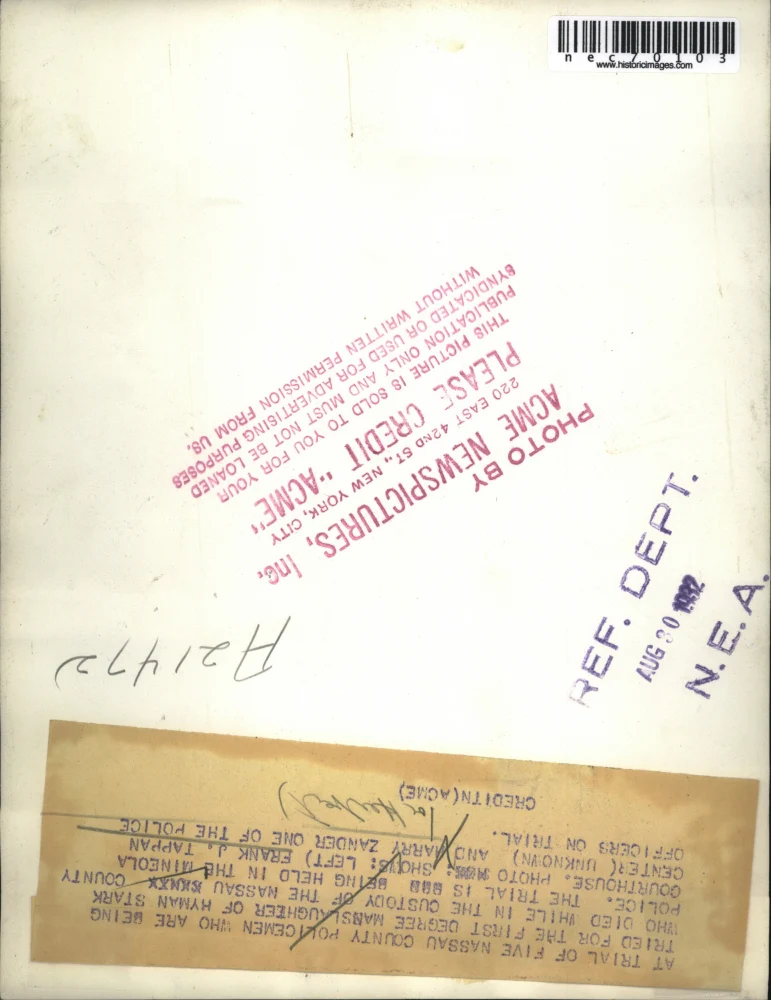 nec70103
www.historicimages.com
PHOTO BY
ACME NEWSPICTURES, Inc.
220 EAST 42ND ST., NEW YORK, CITY
PLEASE CREDIT "ACME"
THIS PICTURE IS SOLD TO YOU FOR YOUR
PUBLICATION ONLY AND MUST NOT BE LOANED
SYNDICATED OR USED FOR ADVERTISING PURPOSES
WITHOUT WRITTEN PERMISSION FROM US.
REF. DEPT.
AUG 30 1932
N.E.A.
A21472
AT TRIAL OF FIVE NASSAU COUNTY POLICEMEN WHO ARE BEING
TRIED FOR THE FIRST DEGREE MANSLAUGHTER OF HYMAN STARK
WHO DIED WHILE IN THE CUSTODY OF THE NASSAU COUNTY
POLICE. THE TRIAL IS BEING HELD IN THE MINEOLA
COURTHOUSE. PHOTO SHOWS: LEFT) FRANK J. TAPPAN
CENTER( UNKNOWN) AND HARRY ZANDER ONE OF THE POLICE
OFFICERS ON TRIAL.
CREDITN(ACME)